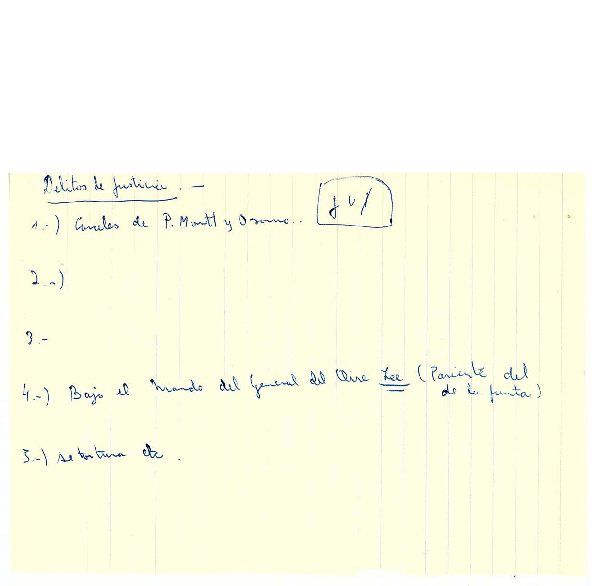 Delitos de Justicia . —
1.-) Carceles de P. Montt y Osorno..
2.-)
3.-
4.-) Bajo el mando del General del Aire Lee (Pariente del
de la junta)
5.-) se tortura etc .